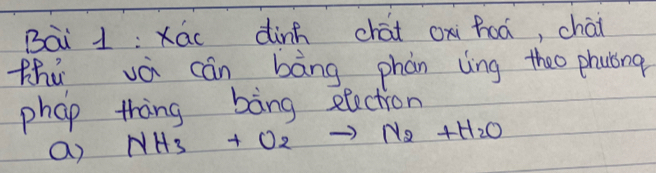 Bài 1 : Xác định chất oxi hoá , chất
khử và cân bằng phản ứng theo phương
pháp thăng bằng electron
a) NH₃ + O₂ → N₂ + H₂O